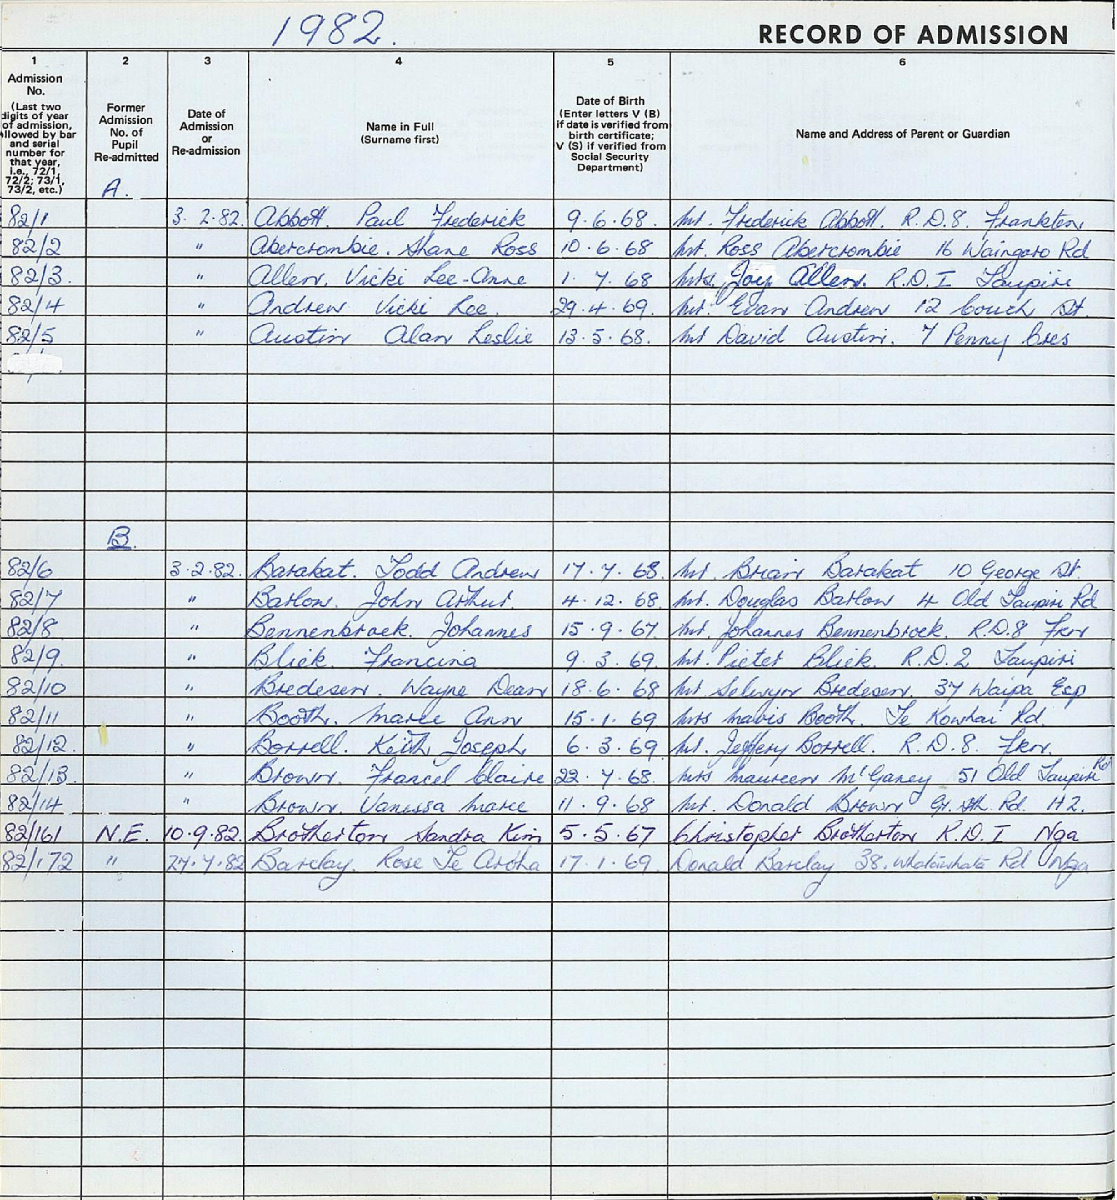 1982. RECORD OF ADMISSION
1 2 3 4 5 6
Admission No. (Last two digits of year of admission, followed by bar and serial number for that year, i.e., 72/1, 72/2; 73/1, 73/2, etc.)
Former Admission No. of Pupil Re-admitted
Date of Admission or Re-admission
Name in Full (Surname first)
Date of Birth (Enter letters V (B) if date is verified from birth certificate; V (S) if verified from Social Security Department)
Name and Address of Parent or Guardian
A.
82/1 3.2.82. Abbott. Paul Frederick 9.6.68. Mr. Frederick Abbott. R.D.8. Frankton
82/2 " Abercrombie. Shane Ross 10.6.68 Mr. Ross Abercrombie 16 Waingaro Rd
82/3. " Allen. Vicki Lee-Anne 1.7.68 Mrs. Joy Allen. R.D.I Taupiri
82/4 " Andrew Vicki Lee. 29.4.69. Mr. Evan Andrew 12 Couch St
82/5 " Austin Alan Leslie 13.5.68. Mr David Austin. 7 Penny Cres
B.
82/6 3.2.82. Barakat. Todd Andrew 17.7.68. Mr. Brian Barakat 10 George St.
82/7 " Barlow. John Arthur. 4.12.68. Mr. Douglas Barlow 4 Old Taupiri Rd
82/8 " Bennenbroek. Johannes 15.9.67. Mr. Johannes Bennenbroek. R.D.8 Fktn
82/9. " Bliek. Francina 9.3.69. Mr. Pieter Bliek. R.D.2 Taupiri
82/10 " Bredesen. Wayne Dean 18.6.68 Mr. Selwyn Bredesen. 37 Waipa Esp
82/11 " Booth. Maree Ann 15.1.69 Mrs Mavis Booth. Te Kowhai Rd.
82/12. " Borrell. Keith Joseph 6.3.69 Mr. Jeffery Borrell. R.D.8. Fktn.
82/13. " Brown. Francel Claire 22.7.68. Mrs Maureen 51 Old Taupiri Rd
82/14 " Brown. Vanessa Maree 11.9.68 Mr. Donald Brown Gt. Sth. Rd. H2.
82/161 N.E. 10.9.82. Brotherton Sandra Kim 5.5.67 Christopher Brotherton R.D.I Nga
82/172 " 27.7.82 Barclay. Rose Te Aroha 17.1.69. Donald Barclay 38. Whatawhata Rd Nga